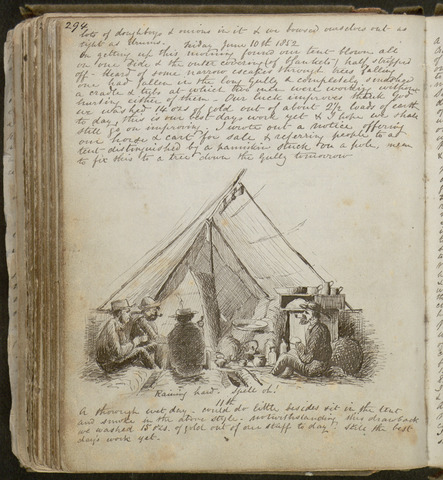 294
lots of doughboys & onions in it & we bowsed ourselves out as
tight as drums. Friday June 10th 1852
On getting up this morning found our tent blown all
on one side & the outer covering (of blankets) half stripped
off – Heard of some narrow escapes through trees falling
one had fallen in the long Gully & completely smashed
a cradle & tubs at which two men were working without
hurting either of them – Our luck improves thank God
we washed 14 ozs of gold out of about 2½ loads of earth
to day, this is our best days work yet & I hope we shall
still go on improving. I wrote out a notice offering
one horse & cart for sale & referring people to a
tent distinguished by a pannikin stuck on a pole, mean
to fix this to a tree down the Gully tomorrow
Raining hard. Spell oh!
11th
A thorough wet day – could do little besides sit in the tent
and smoke in the above style – notwithstanding this drawback
we washed 15 ozs. of gold out of our stuff to day, still the best
day's work yet.